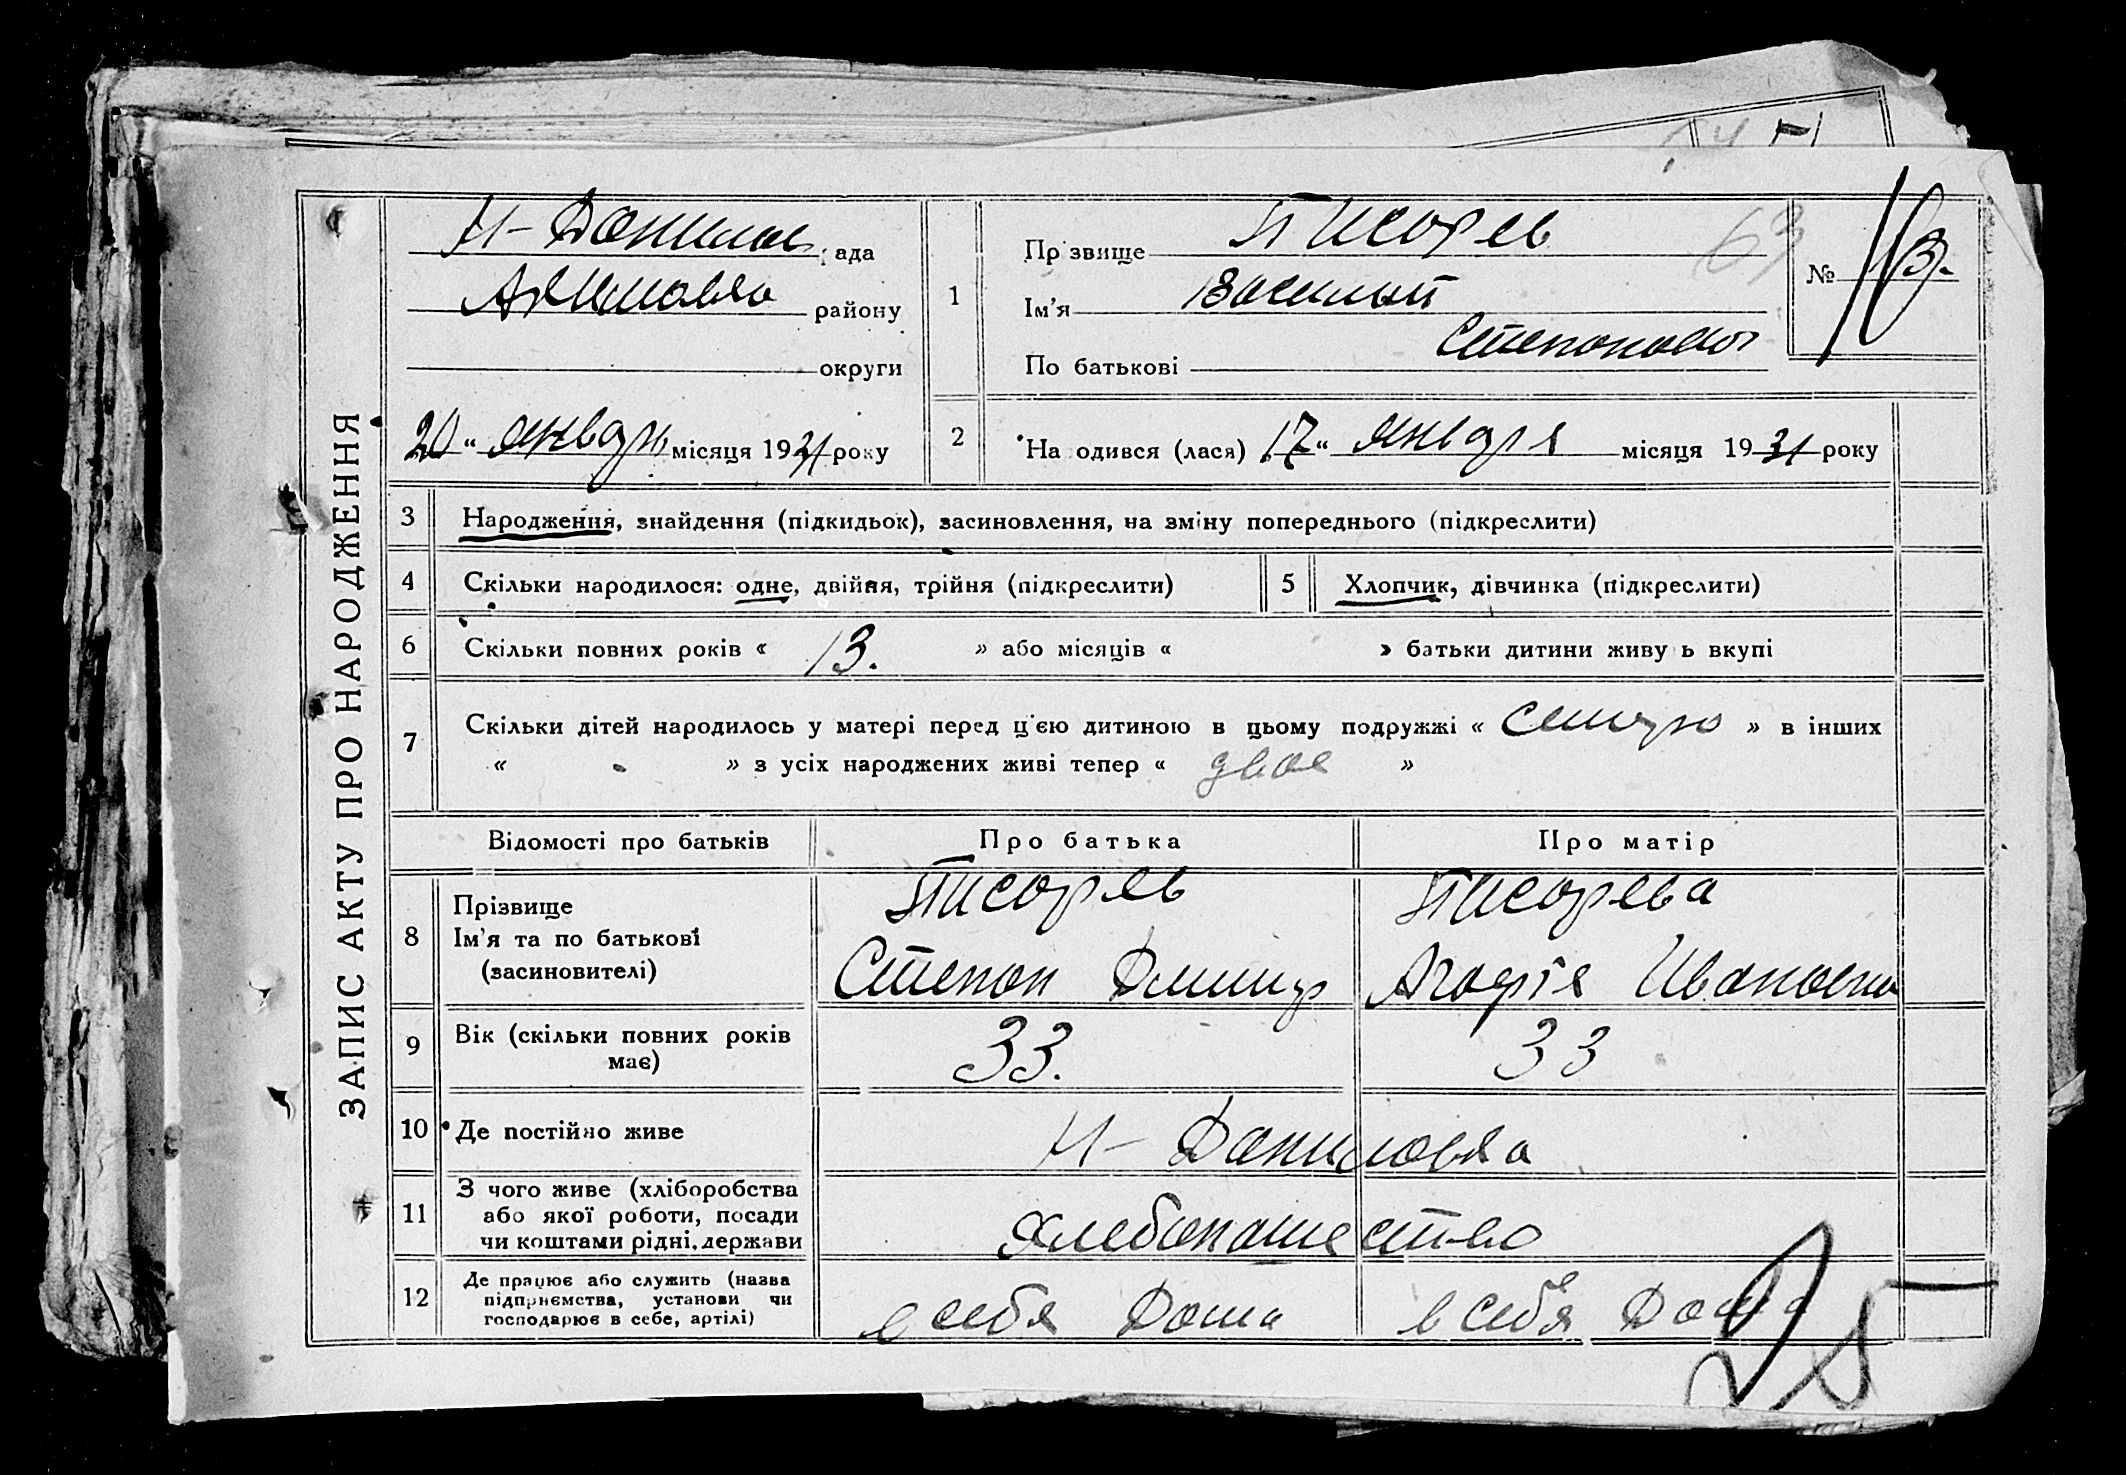 ЗАПИС АКТУ ПРО НАРОДЖЕННЯ
Н-Данилов. ада
району
округи
20 " январь місяця 1931 року
1
Пр звище Писарев
Ім'я Василий
По батькові Степанович
63
№
2
На одився (лася) 17 " января місяця 1931 року
3 Народження, знайдення (підкидьок), засиновлення, на зміну попереднього (підкреслити)
4 Скільки народилося: одне, двійня, трійня (підкреслити)
5 Хлопчик, дівчинка (підкреслити)
6 Скільки повних років « 13. » або місяців « » батьки дитини живу ь вкупі
7 Скільки дітей народилось у матері перед ц'єю дитиною в цьому подружжі « » в інших
« » з усіх народжених живі тепер « двое »
Відомості про батьків Про батька Про матір
8 Прізвище
Ім'я та по батькові
(засиновителі)
Писарев
Степан Дмитр
Писарева
Агафія Ивановна
9 Вік (скільки повних років
має)
33. 33
10 Де постійно живе Н- Даниловка
11 З чого живе (хліборобства
або якої роботи, посади
чи коштами рідні, держави
хлебопашество
12 Де працює або служить (назва
підприємства, установи чи
господарює в себе, артілі)
в себя дома в себя дома
25